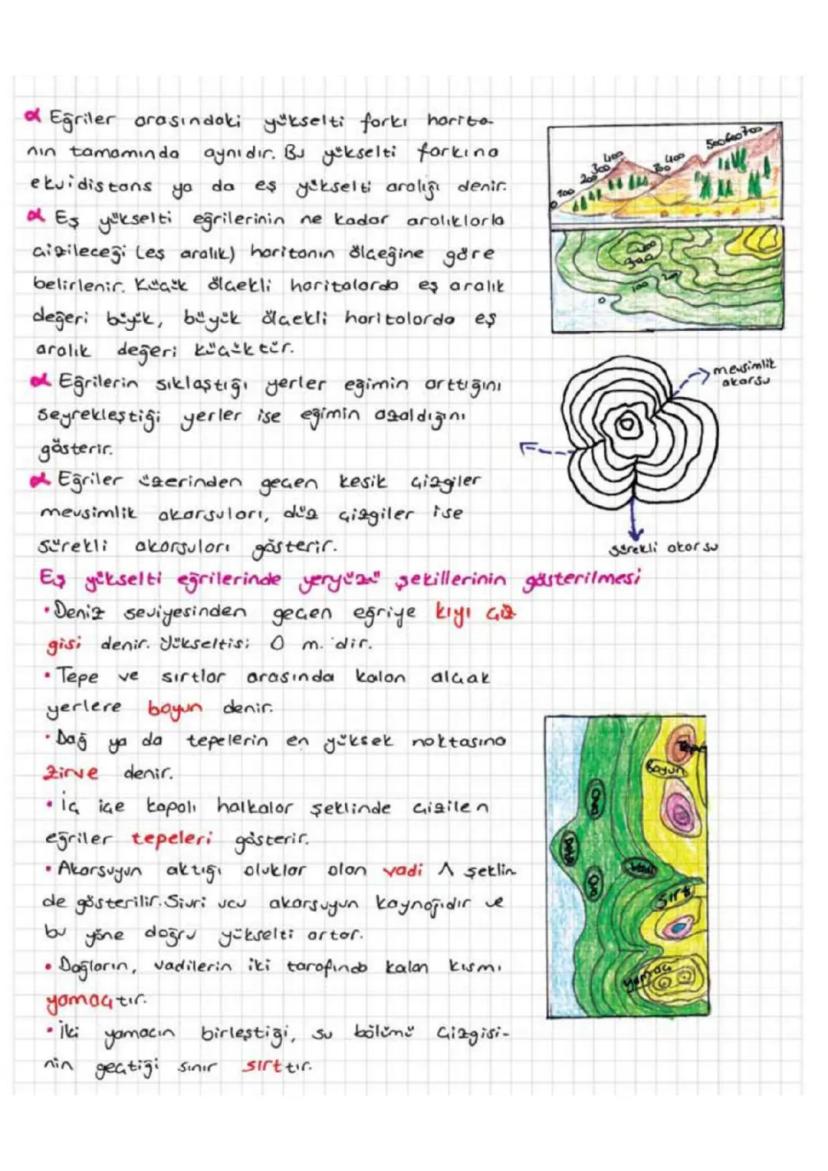 α Eğriler arasındaki yükselti farkı harita-
nın tamamında aynıdır. Bu yükselti farkına
ekuidistans ya da eş yükselti aralığı denir.
α Eş yükselti eğrilerinin ne kadar aralıklarla
çizileceği (eş aralık) haritanın ölçeğine göre
belirlenir. Küçük ölçekli haritalarda eş aralık
değeri büyük, büyük ölçekli haritalarda eş
aralık değeri küçüktür.
α Eğrilerin sıklaştığı yerler eğimin arttığını
seyrekleştiği yerler ise eğimin azaldığını
gösterir.
α Eğriler üzerinden geçen kesik çizgiler
mevsimlik akarsuları, düz çizgiler ise
sürekli akarsuları gösterir.
0 100 200 300 400 300 400 500 600 700
300
0 100 200
mevsimlik
akarsu
sürekli akarsu
Eş yükselti eğrilerinde yeryüzü şekillerinin gösterilmesi
• Deniz seviyesinden geçen eğriye kıyı çiz
gisi denir. Yükseltisi 0 m.'dir.
• Tepe ve sırtlar arasında kalan alçak
yerlere boyun denir.
• Dağ ya da tepelerin en yüksek noktasına
zirve denir.
• İç içe kapalı halkalar şeklinde çizilen
eğriler tepeleri gösterir.
• Akarsuyun aktığı oluklar olan vadi Λ şeklin-
de gösterilir. Sivri ucu akarsuyun kaynağıdır ve
bu yöne doğru yükselti artar.
• Dağların, vadilerin iki tarafında kalan kısmı
yamaçtır.
• İki yamacın birleştiği, su bölümü çizgisi-
nin geçtiği sınır sırttır.
Tepe
Boyun
Ova
Delta
Ova
Vadi
Sırt
Yamaç